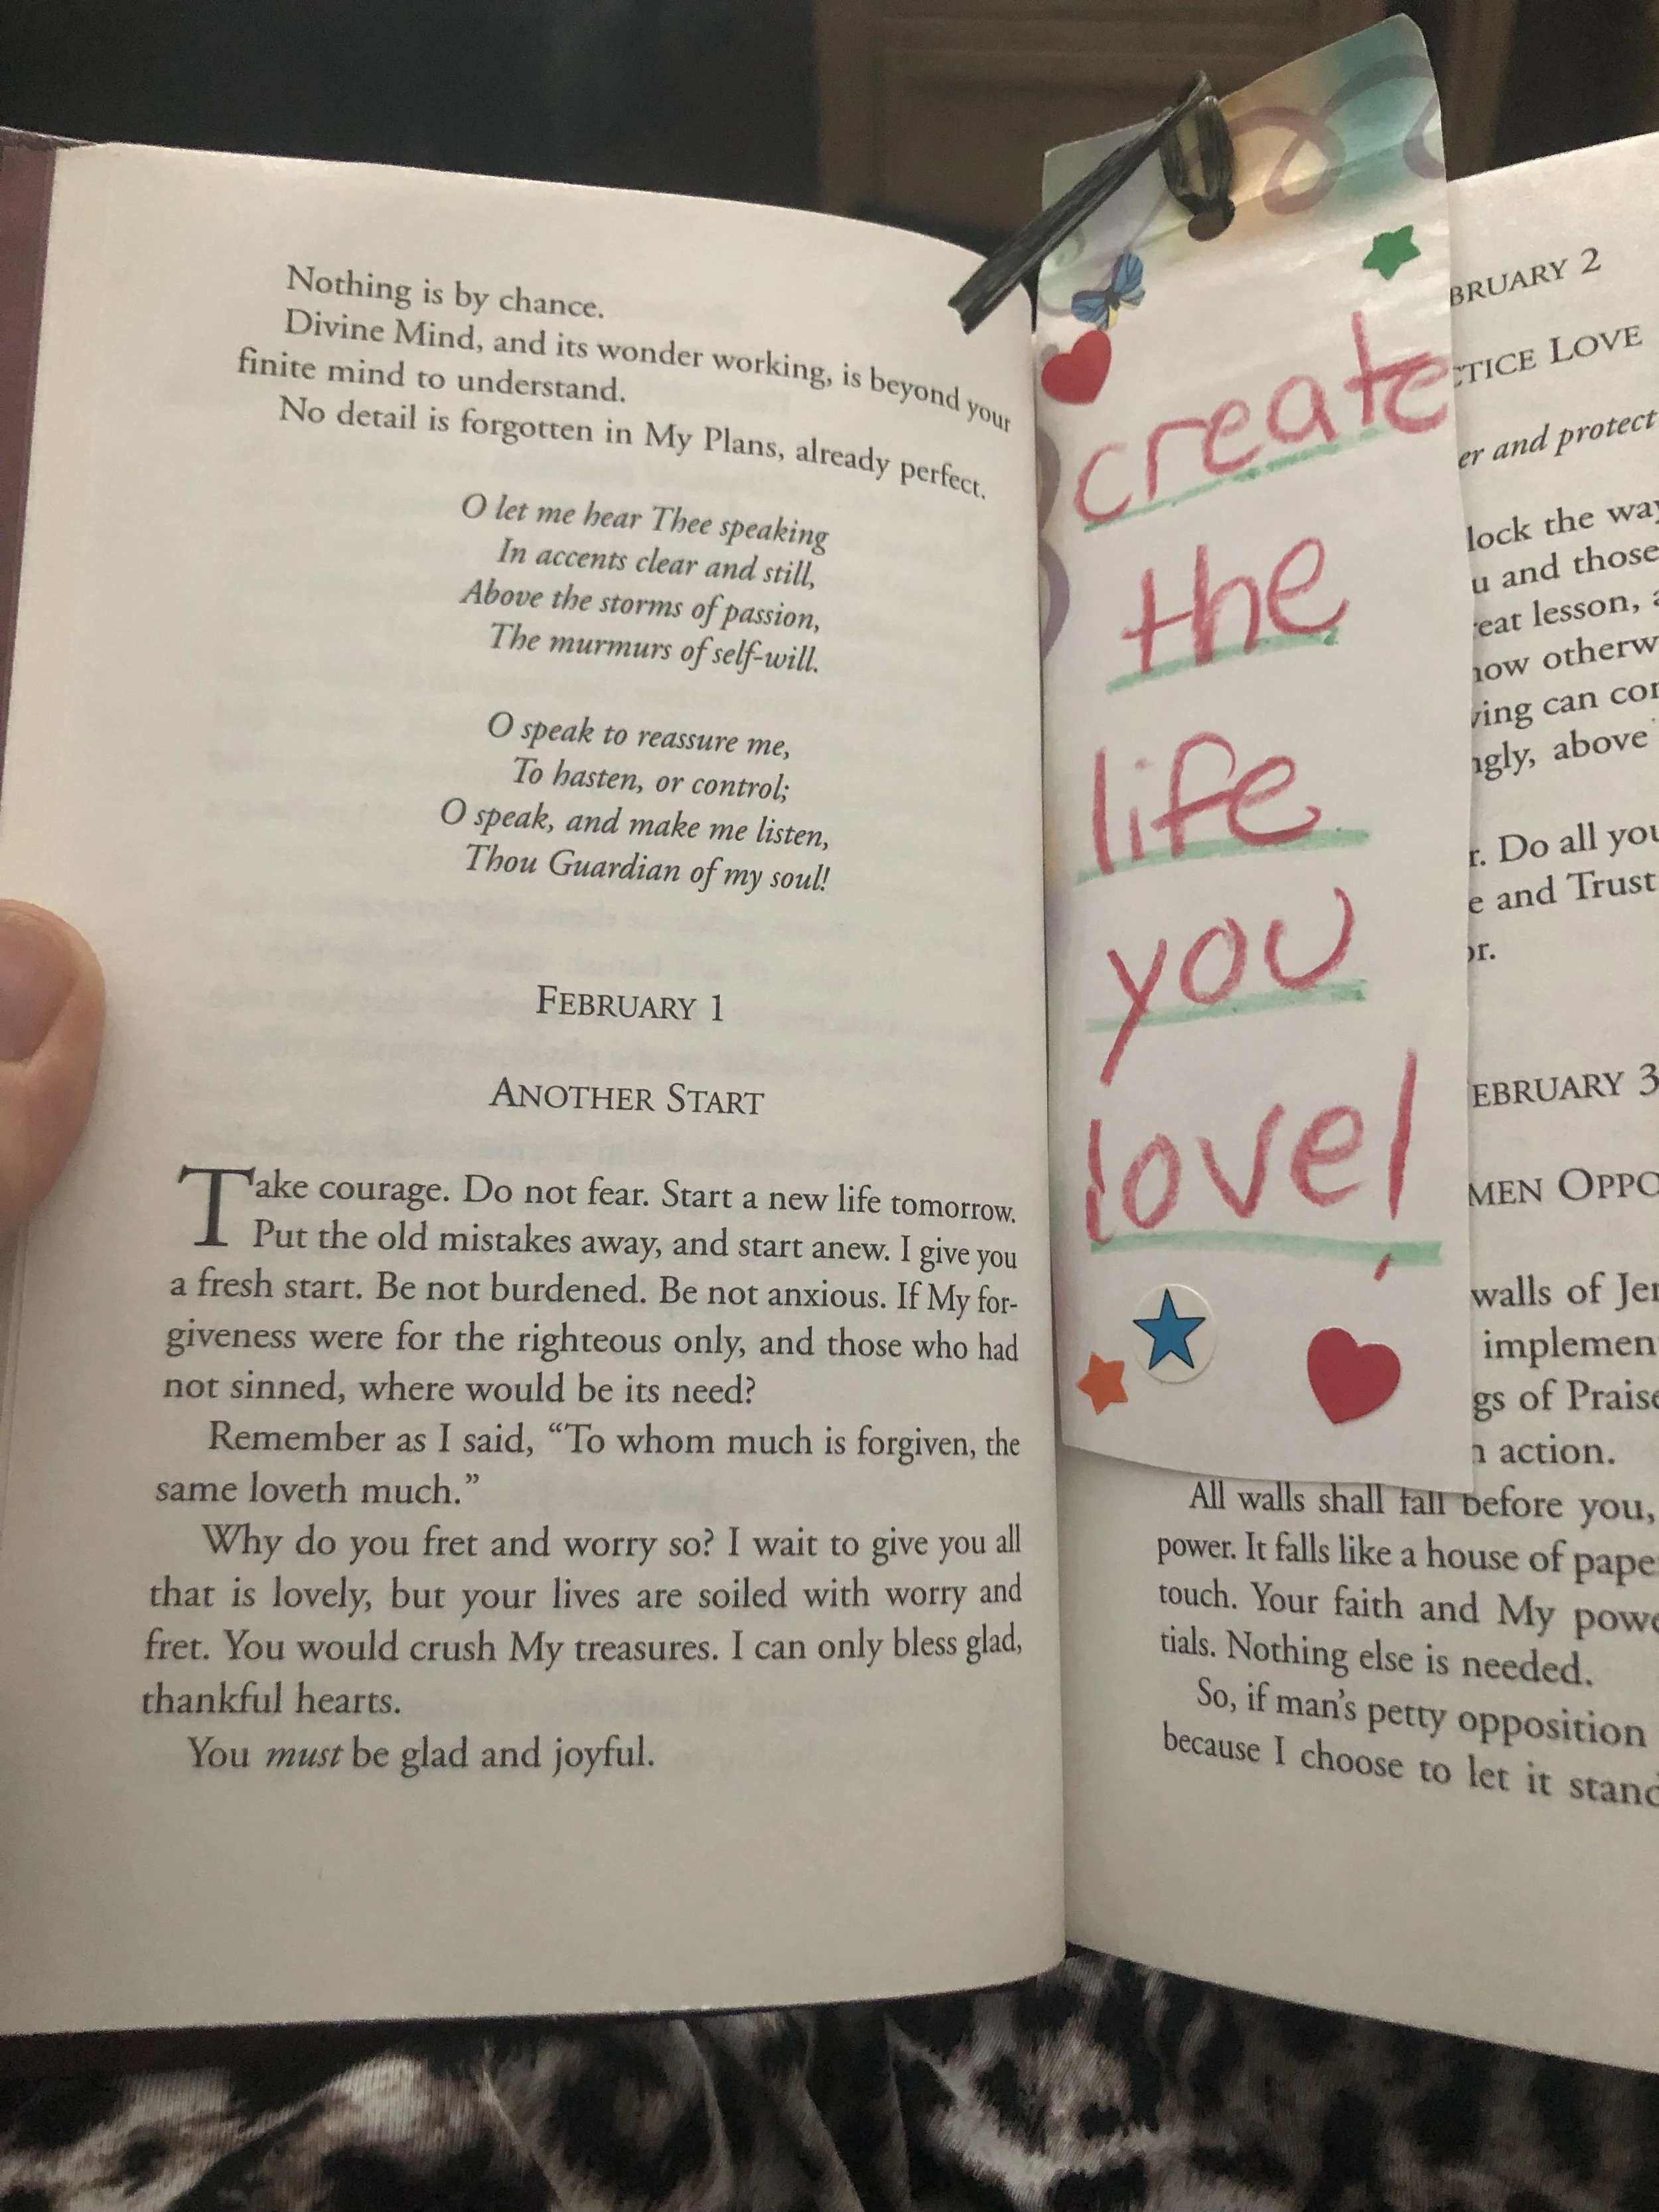 Nothing is by chance.
Divine Mind, and its wonder working, is beyond your
finite mind to understand.
No detail is forgotten in My Plans, already perfect.
O let me hear Thee speaking
In accents clear and still,
Above the storms of passion,
The murmurs of self-will.
O speak to reassure me,
To hasten, or control;
O speak, and make me listen,
Thou Guardian of my soul!
FEBRUARY 1
ANOTHER START
Take courage. Do not fear. Start a new life tomorrow.
Put the old mistakes away, and start anew. I give you
a fresh start. Be not burdened. Be not anxious. If My for-
giveness were for the righteous only, and those who had
not sinned, where would be its need?
Remember as I said, “To whom much is forgiven, the
same loveth much.”
Why do you fret and worry so? I wait to give you all
that is lovely, but your lives are soiled with worry and
fret. You would crush My treasures. I can only bless glad,
thankful hearts.
You must be glad and joyful.
create
the
life
you
love!
BRUARY 2
CTICE LOVE
er and protect
lock the way
u and those
eat lesson,
now otherw
ving can con
ngly, above
r. Do all you
e and Trust
or.
EBRUARY 3
MEN OPPO
walls of Jer
implemen
gs of Praise
n action.
All walls shall fall before you,
power. It falls like a house of pape
touch. Your faith and My powe
tials. Nothing else is needed.
So, if man's petty opposition
because I choose to let it stand